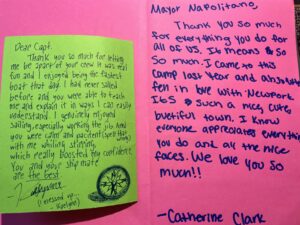 Dear Capt.
Thank you so much for letting
me be apart of your crew it was real
fun and I enjoyed being the fastest
boat that day. I had never sailed
before and you were able to teach
me and explain it in ways I can easily
understand. I genuinely enjoyed
sailing, especially working the jib. And
you were calm and accident(spill thing)
with me whilst spinning,
which really boosted my confidence.
You and your ship mate
are the best!
(messed up,
Mayor Napolitano,
Thank you so much
for everything you do for
all of us. It means so
so much. I came to this
camp last year and absolutely
fell in love with Newport.
It's such a nice, cute,
buetiful town. I know
everyone appreciates everything
you do and all the nice
faces. We love you so
much!!
-Catherine Clark